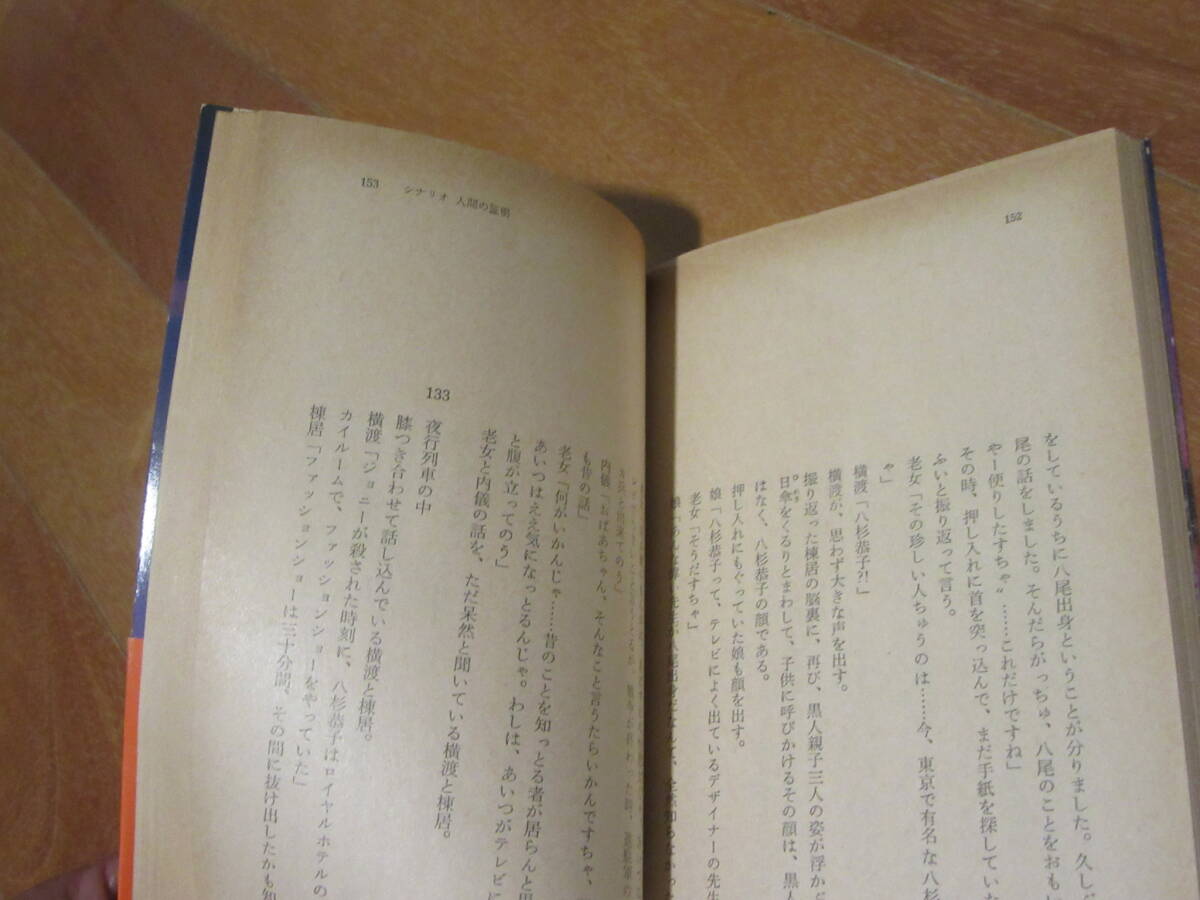 152
をしているうちに八尾出身ということが分りました。久しぶ
尾の話をしました。そんだらがっちゅ、八尾のことをおも
やー便りしたすちゃ〟……これだけですね」
その時、押し入れに首を突っ込んで、まだ手紙を探していた
ふいと振り返って言う。
老女「その珍しい人ちゅうのは……今、東京で有名な八杉
ゃ」
横渡「八杉恭子?!」
横渡が、思わず大きな声を出す。
振り返った棟居の脳裏に、再び、黒人親子三人の姿が浮かぶ
日傘をくるりとまわして、子供に呼びかけるその顔は、黒人
はなく、八杉恭子の顔である。
押し入れにもぐっていた娘も顔を出す。
娘「八杉恭子って、テレビによく出ているデザイナーの先生
老女「そうだすちゃ」
153 シナリオ 人間の証明
内儀「おばあちゃん、そんなこと言うたらいかんですちゃ、
も昔の話」
老女「何がいかんじゃ……昔のことを知っとる者が居らんと思
あいつはええ気になっとるんじゃ。わしは、あいつがテレビに
と腹が立ってのう」
老女と内儀の話を、ただ呆然と聞いている横渡と棟居。
133
夜行列車の中
膝つき合わせて話し込んでいる横渡と棟居。
横渡「ジョニーが殺された時刻に、八杉恭子はロイヤルホテルの
カイルームで、ファッションショーをやっていた」
棟居「ファッションショーは三十分間、その間に抜け出したかも知